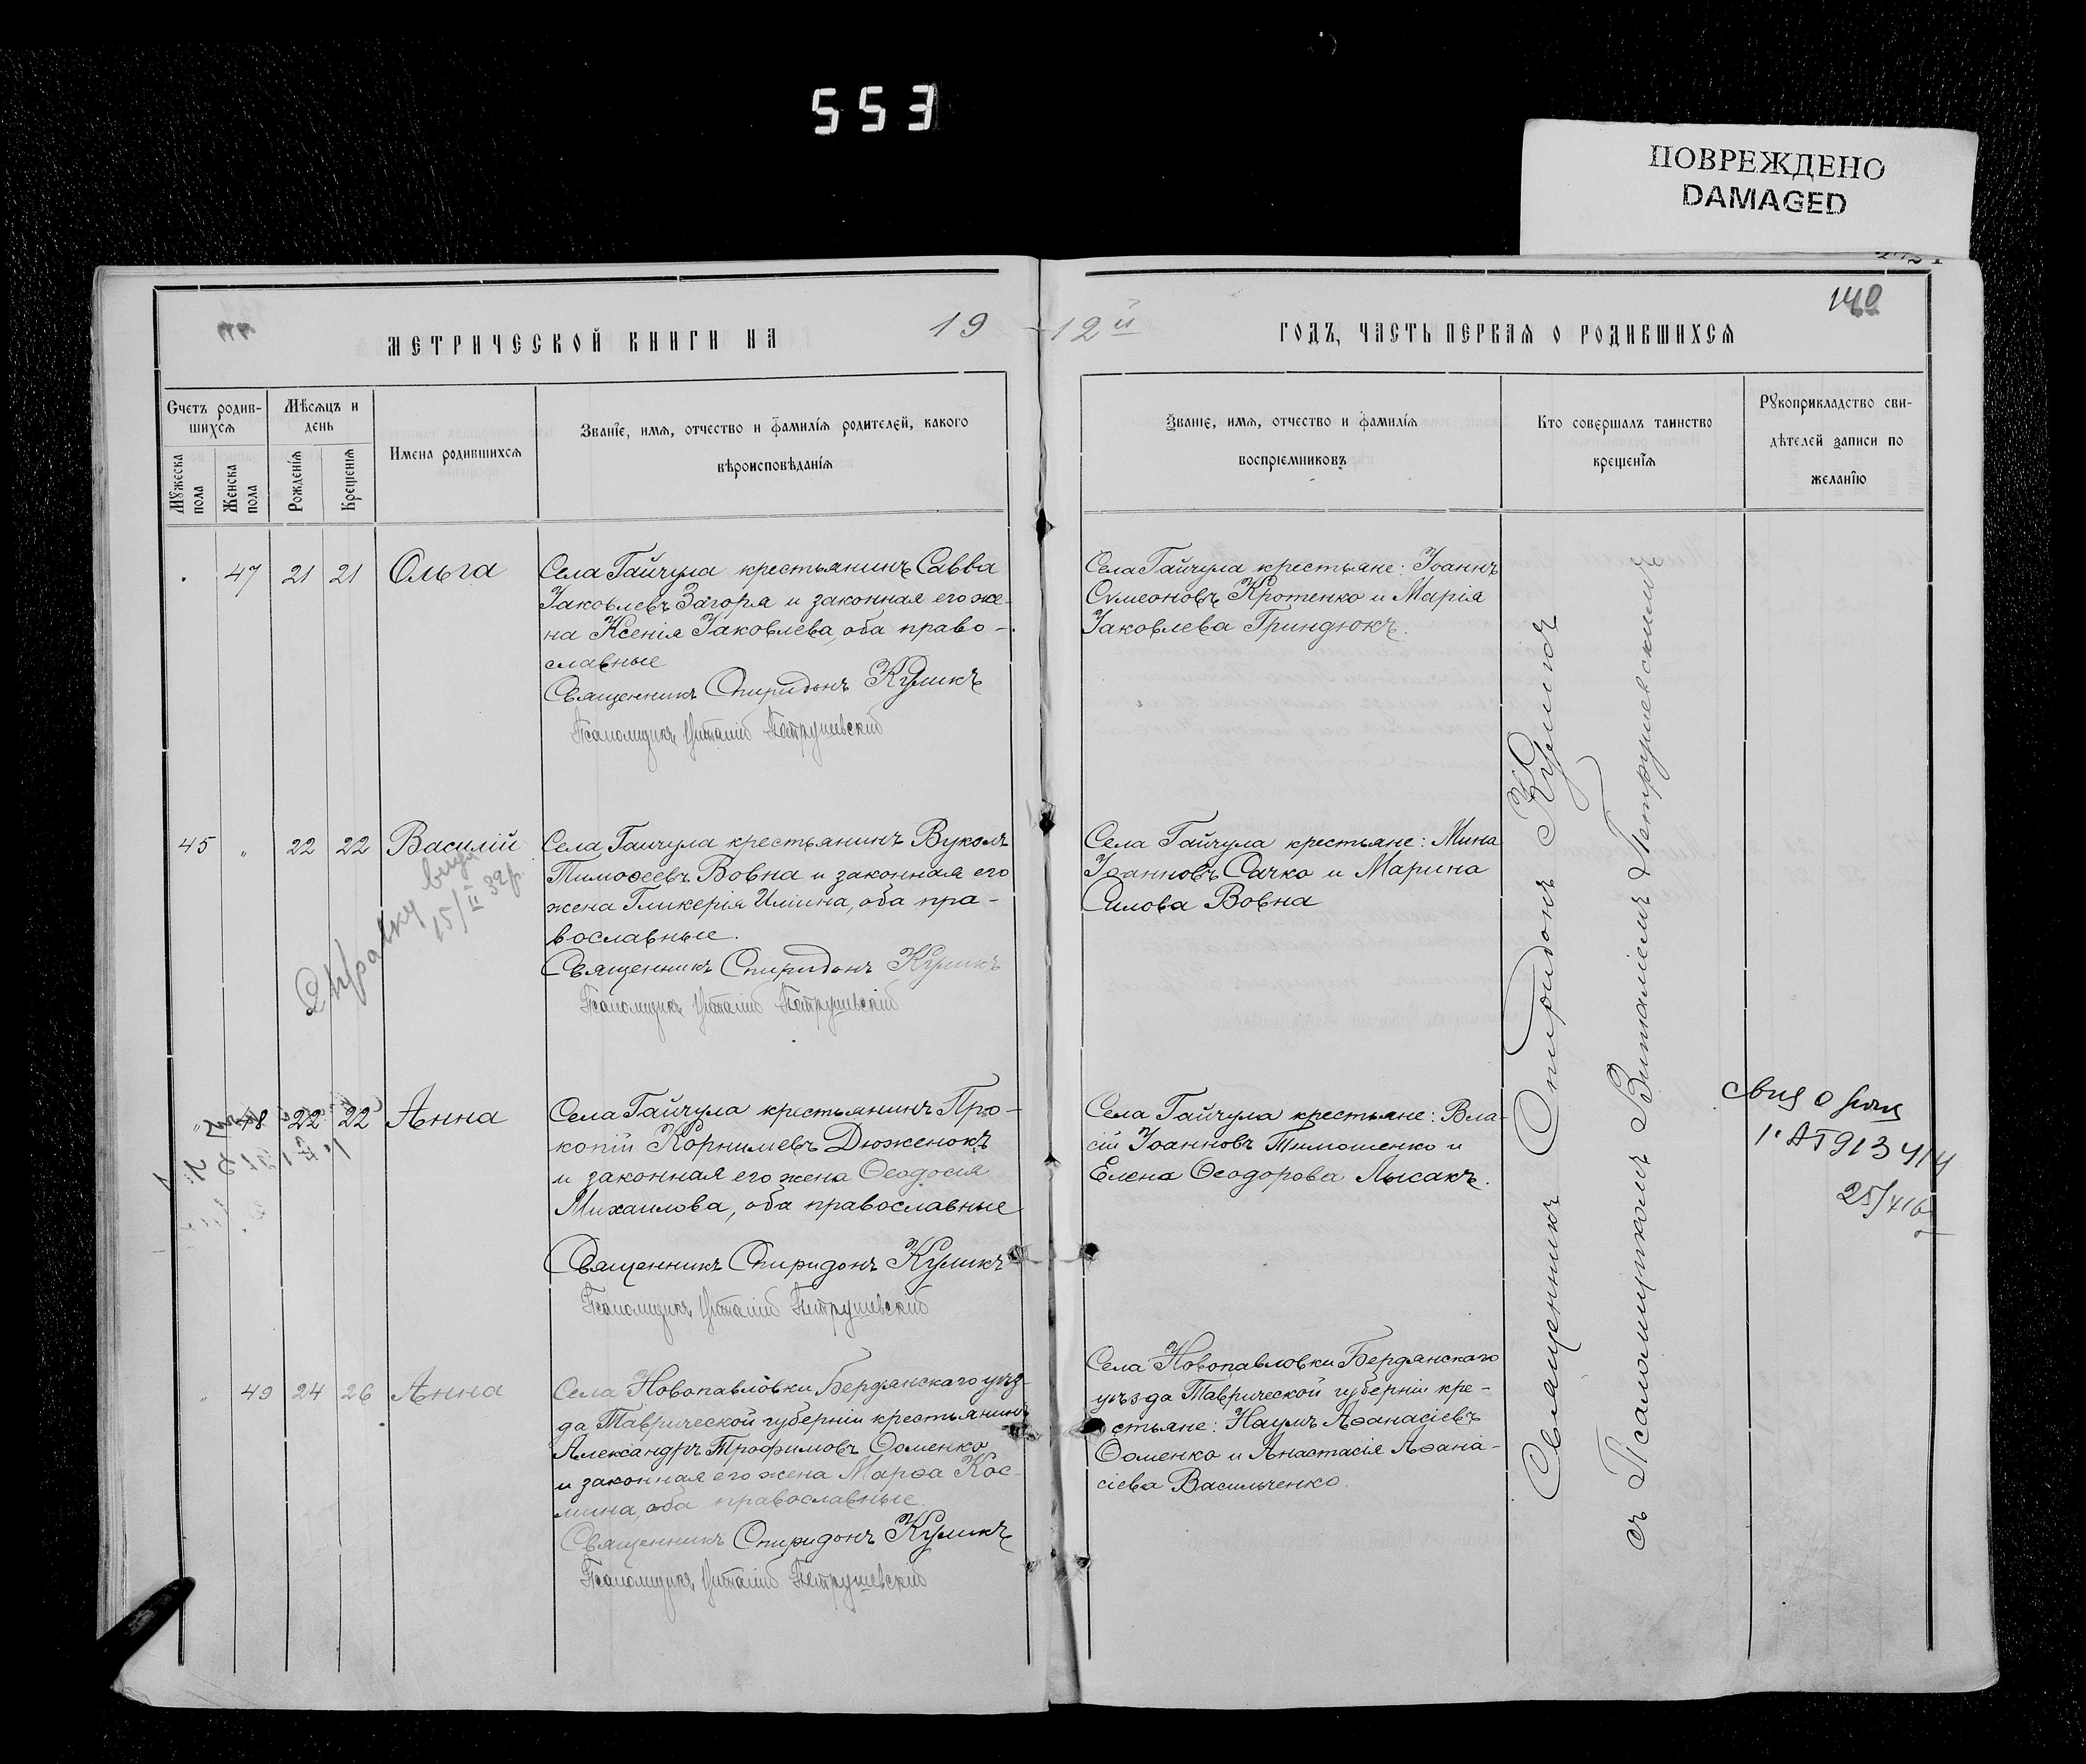 553
ПОВРЕЖДЕНО
DAMAGED
140
МЕТРИЧЕСКОЙ КНИГИ НА 19
12й ГОДЪ, ЧАСТЬ ПЕРВАЯ О РОДИВШИХСЯ
Счетъ родив-
шихся
Мѣсяцъ и
день
Мꙋжеска
пола
Женска
пола
Рожденїя
Крещенїя
Имена родившихся
Званїе, имя, отчество и фамилїя родителей, какого
вѣроисповѣданїя
Званїе, имя, отчество и фамилїя
воспрїемниковъ
Кто совершалъ таинство
крещенїя
Рꙋкоприкладство сви-
дѣтелей записи по
желанїю
47 21 21 Ольга
Села Гайчула крестьянинъ Савва
Іаковлевъ Загоря и законная его же-
на Ксенія Іаковлева, оба право-
славные
Священникъ Спиридонъ Куликъ
Псаломщикъ Виталій Петрушевскій
Села Гайчула крестьяне: Іоаннъ
Сѵмеоновъ Кротенко и Марія
Іаковлева Гриндюкъ.
45 " 22 22 Василій
Села Гайчула крестьянинъ Вуколъ
Тимоѳеевъ Вовна и законная его
жена Гликерія Иліина, оба пра-
вославные.
Священникъ Спиридонъ Куликъ
Псаломщикъ Виталій Петрушевскій
Справку
15/II 32р.
Села Гайчула крестьяне: Мина
Іоанновъ Сачко и Марина
Силова Вовна
" 48 22 22 Анна
Села Гайчула крестьянинъ Про-
копій Корниліевъ Дюженокъ
и законная его жена Ѳеодосія
Михаилова, оба православные
Священникъ Спиридонъ Куликъ
Псаломщикъ Виталій Петрушевскій
Села Гайчула крестьяне: Вла-
сій Іоанновъ Тимошенко и
Елена Ѳеодорова Лысакъ.
" 49 24 26 Анна
Села Новопавловки Бердянскаго уѣз-
да Таврической губерніи крестьянинъ
Александръ Трофимовъ Ѳоменко
и законная его жена Марѳа Кос-
мина, оба православные.
Священникъ Спиридонъ Куликъ
Псаломщикъ Виталій Петрушевскій
Села Новопавловки Бердянскаго
уѣзда Таврической губерніи кре-
стьяне: Наумъ Аѳанасіевъ
Ѳоменко и Анастасія Аѳана-
сіева Васильченко.
Священникъ Спиридонъ Куликъ
съ Псаломщикомъ Виталіемъ Петрушевскимъ